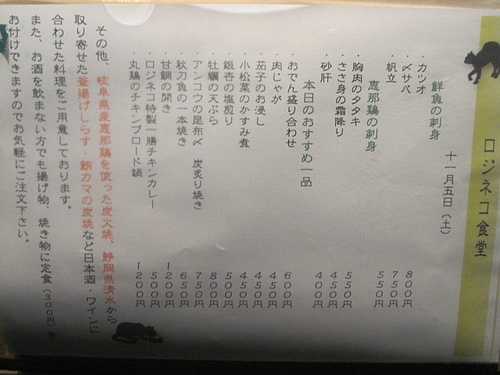 ロジネコ食堂
十一月五日（土）
鮮魚の刺身
・カツオ 800円
・〆サバ 750円
・帆立 550円
恵那鶏の刺身
・胸肉のタタキ 550円
・ささ身の霜降り 450円
・砂肝 400円
本日のおすすめ一品
おでん盛り合わせ 600円
肉じゃが 450円
茄子のお浸し 450円
小松菜のかすみ煮 450円
銀杏の塩煎り 500円
牡蠣の天ぷら 800円
アンコウの昆布〆 炭炙り焼き 750円
秋刀魚の一本焼き 650円
甘鯛の開き 1200円
ロジネコ特製一膳チキンカレー 500円
丸鶏のチキンブロード鍋 1200円
その他、岐阜県産恵那鶏を使った炭火焼、静岡県清水から
取り寄せた釜揚げしらす・鮪カマの炭焼など日本酒・ワインに
合わせた料理をご用意しております。
また、お酒を飲まない方でも揚げ物、焼き物に定食（300円）を
お付けできますのでお気軽にご注文下さい。